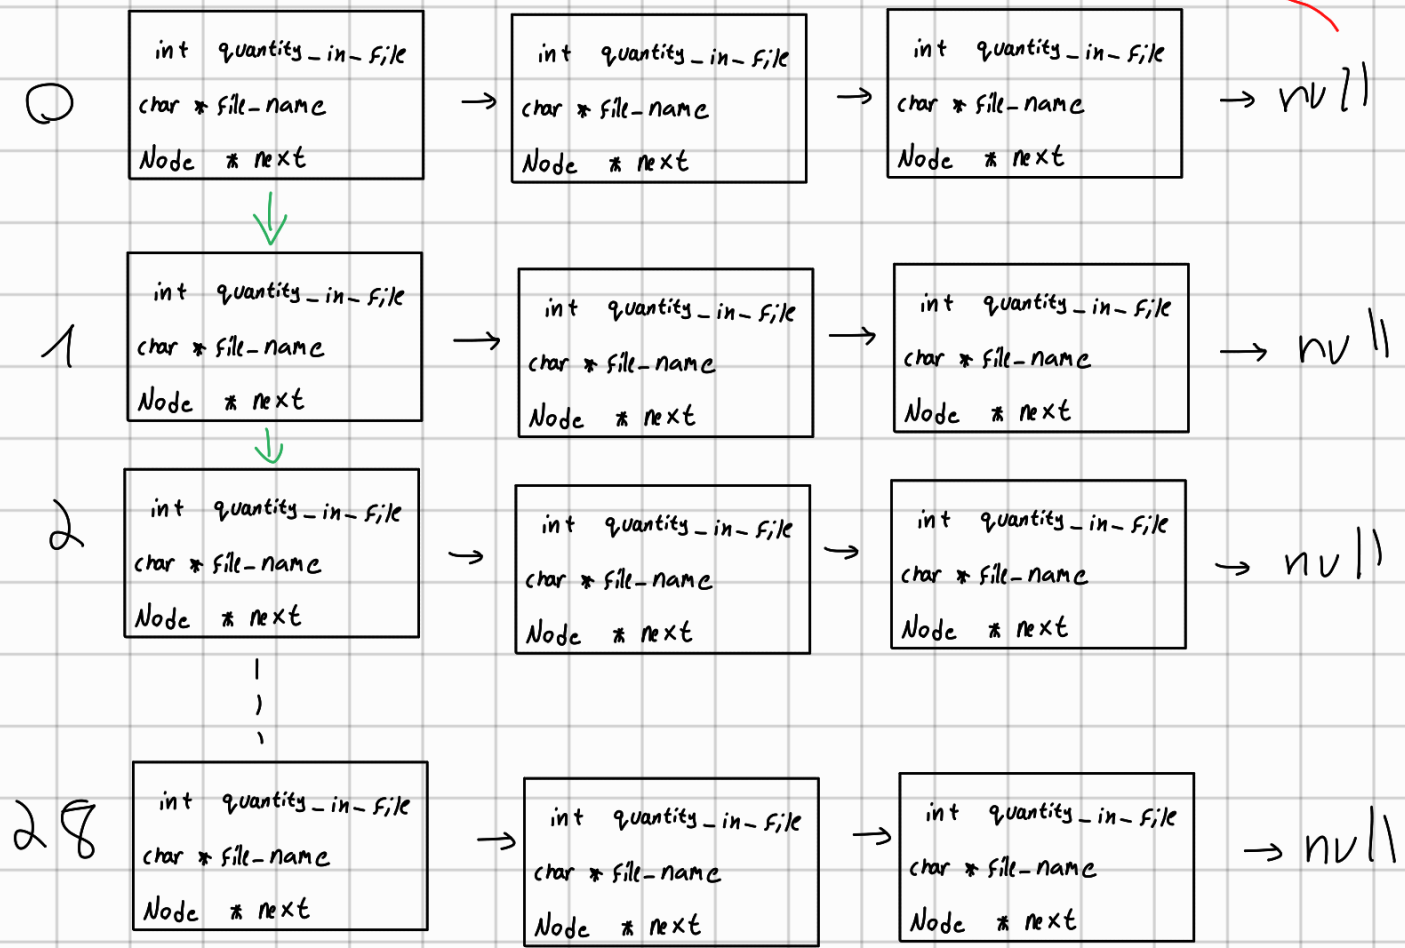 0
int quantity_in_file
char * file_name
Node * next
→
int quantity_in_file
char * file_name
Node * next
→
int quantity_in_file
char * file_name
Node * next
→ null
1
int quantity_in_file
char * file_name
Node * next
→
int quantity_in_file
char * file_name
Node * next
→
int quantity_in_file
char * file_name
Node * next
→ null
2
int quantity_in_file
char * file_name
Node * next
→
int quantity_in_file
char * file_name
Node * next
→
int quantity_in_file
char * file_name
Node * next
→ null
28
int quantity_in_file
char * file_name
Node * next
→
int quantity_in_file
char * file_name
Node * next
→
int quantity_in_file
char * file_name
Node * next
→ null